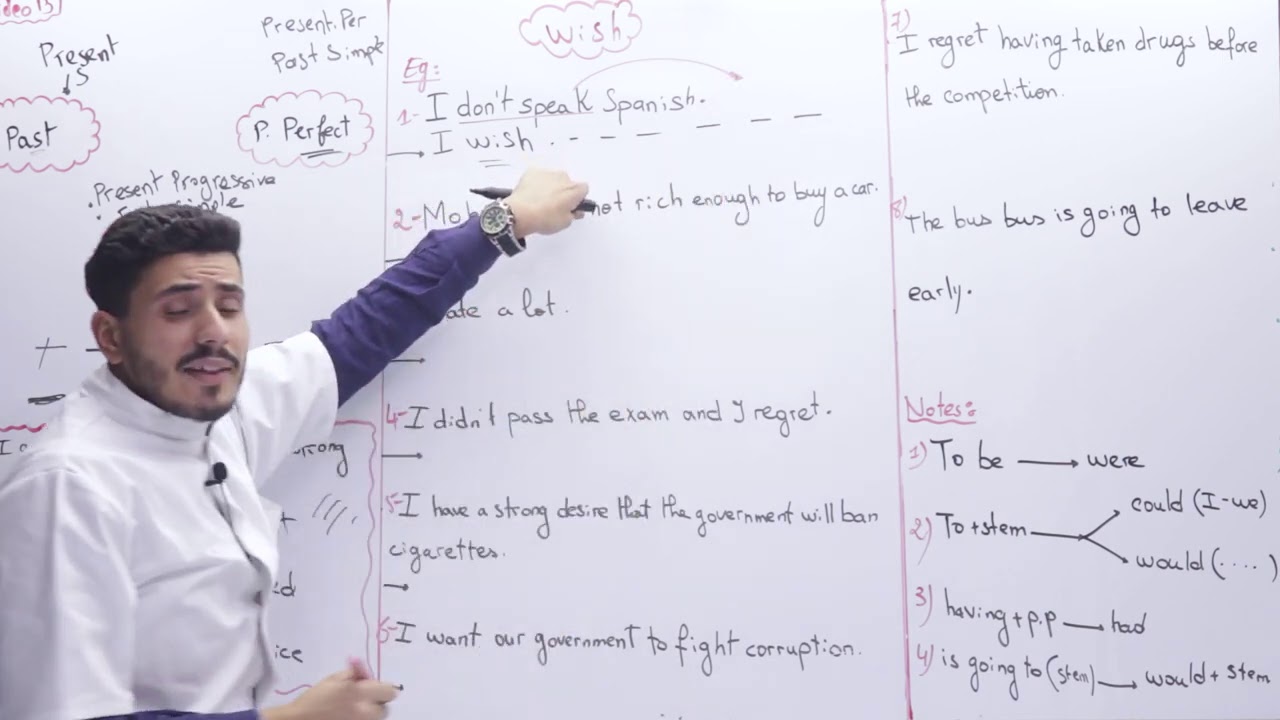 Present
Past
Present.Per
Past Simple
P. Perfect
Present Progressive
rong
ed
ice
Wish
Eg:
1- I don't speak Spanish.
I wish
2- not rich enough to buy a car.
ate a lot.
4- I didn't pass the exam and I regret.
5- I have a strong desire that the government will ban
cigarettes.
6- I want our government to fight corruption.
7)
I regret having taken drugs before
the competition.
8) The bus bus is going to leave
early.
Notes:
1) To be → were
2) To+stem → could (I-we)
would (....)
3) having + p.p → had
4) is going to (stem) → would + stem